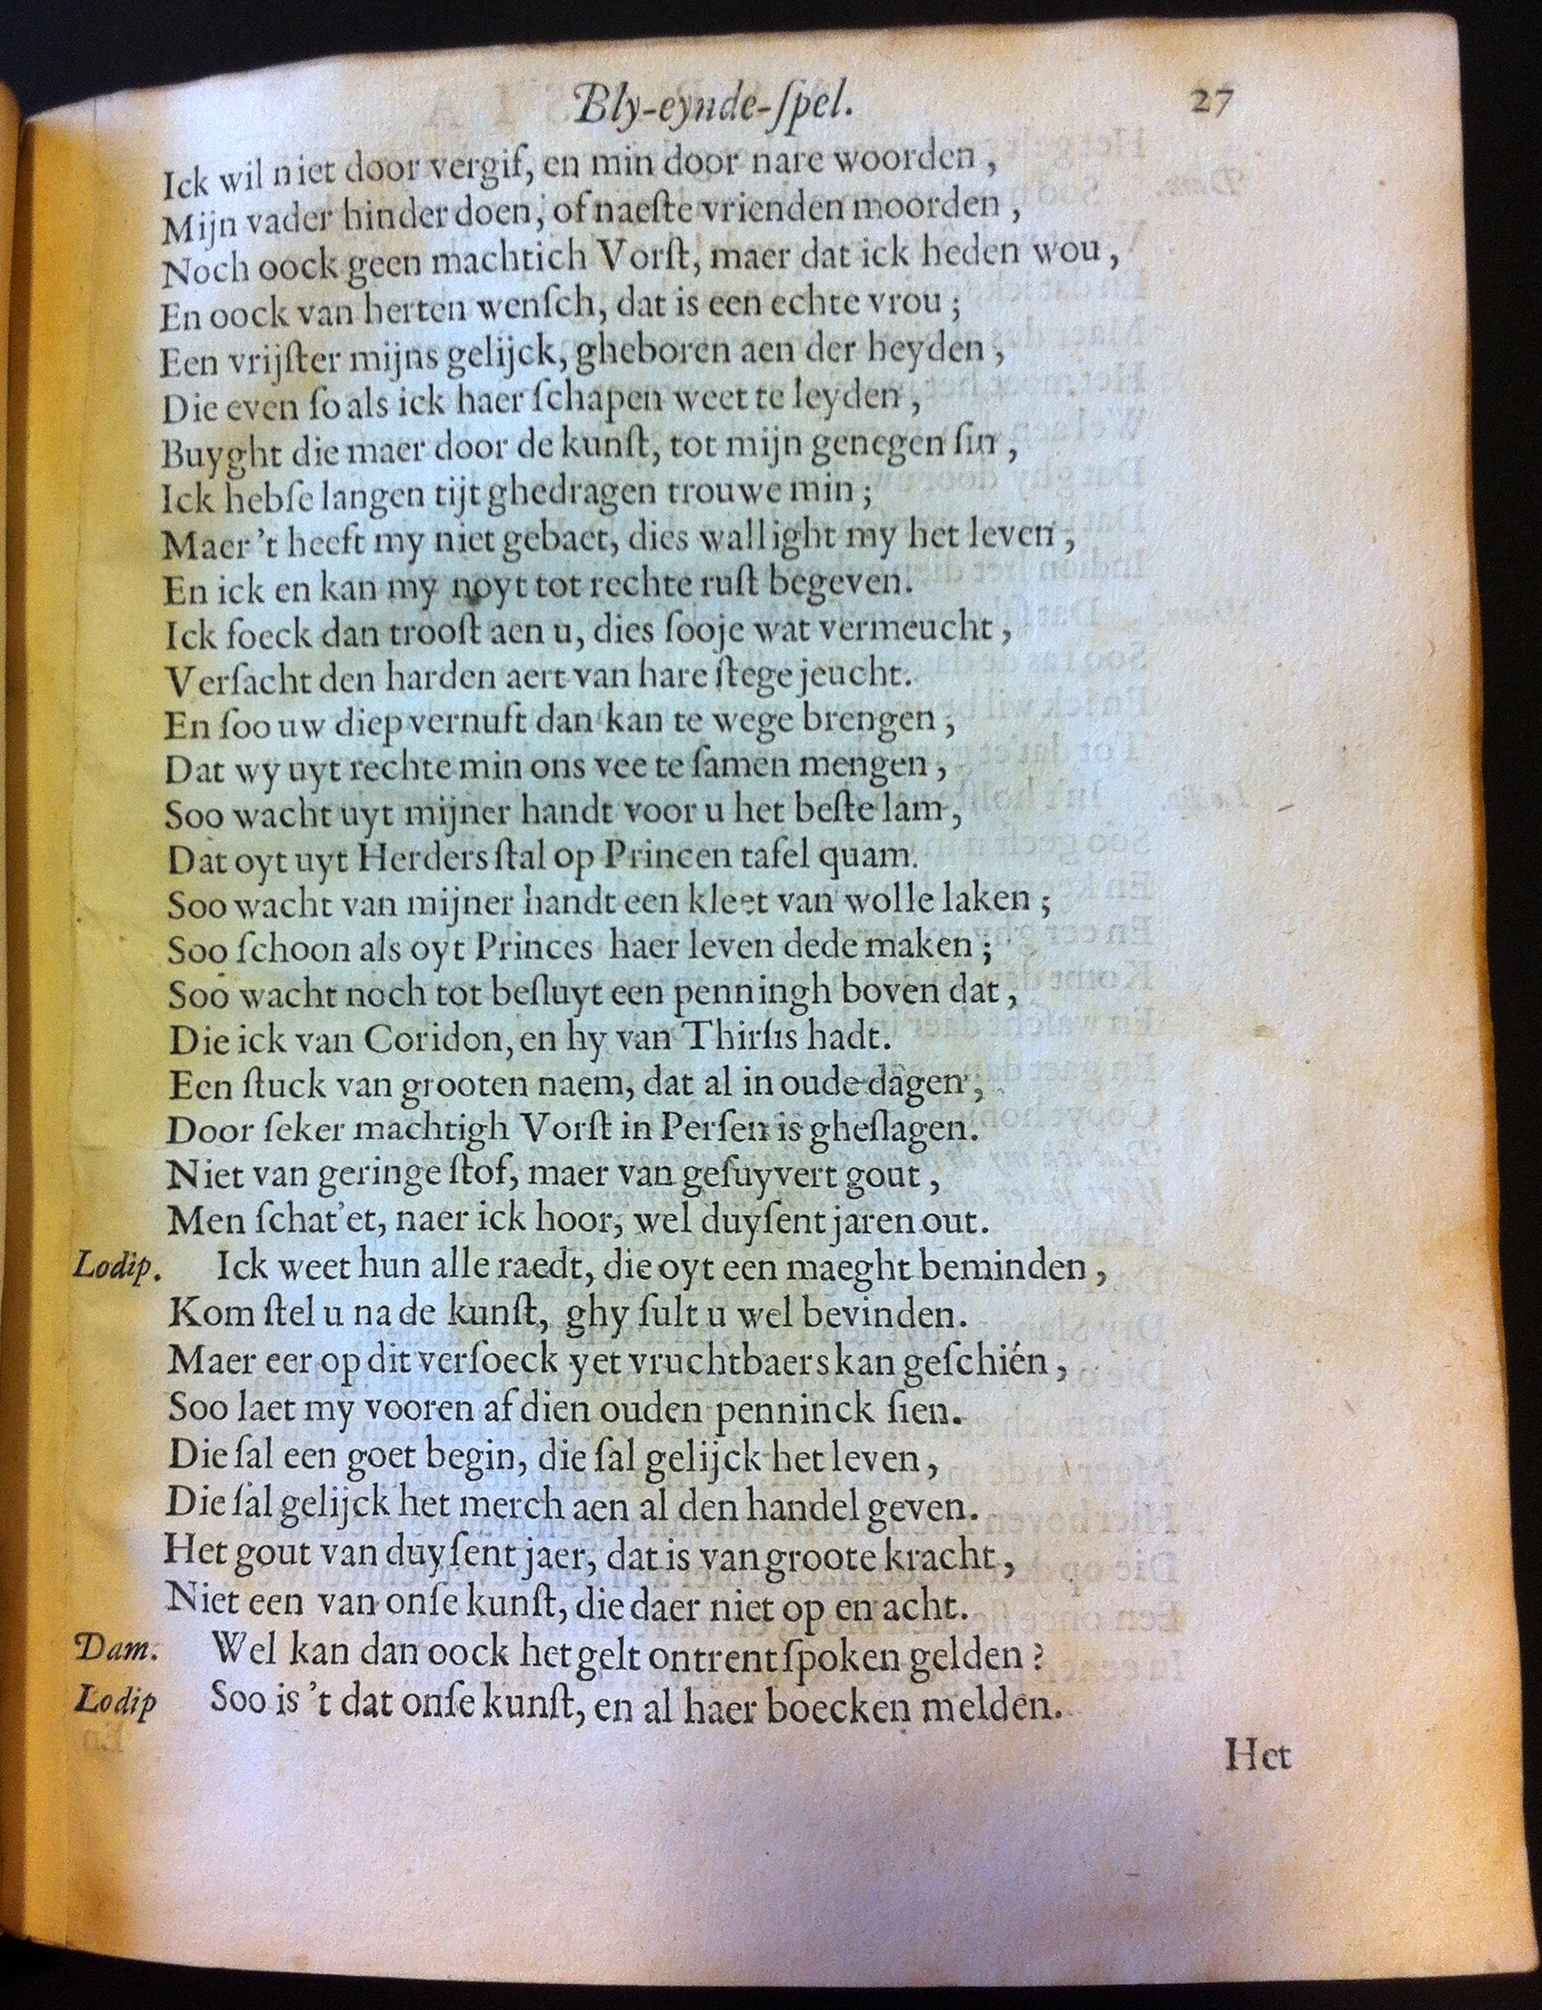 Bly-eynde-ſpel. 27
Ick wil niet door vergif, en min door nare woorden,
Mijn vader hinder doen, of naeſte vrienden moorden,
Noch oock geen machtich Vorſt, maer dat ick heden wou,
En oock van herten wenſch, dat is een echte vrou;
Een vrijſter mijns gelijck, gheboren aen der heyden,
Die even ſo als ick haer ſchapen weet te leyden,
Buyght die maer door de kunſt, tot mijn genegen ſin,
Ick hebſe langen tijt ghedragen trouwe min;
Maer 't heeft my niet gebaet, dies wallight my het leven,
En ick en kan my noyt tot rechte ruſt begeven.
Ick ſoeck dan trooſt aen u, dies ſooje wat vermeucht,
Verſacht den harden aert van hare ſtege jeucht.
En ſoo uw diep vernuft dan kan te wege brengen,
Dat wy uyt rechte min ons vee te ſamen mengen,
Soo wacht uyt mijner handt voor u het beſte lam,
Dat oyt uyt Herders ſtal op Princen tafel quam.
Soo wacht van mijner handt een kleet van wolle laken;
Soo ſchoon als oyt Princes haer leven dede maken;
Soo wacht noch tot beſluyt een penningh boven dat,
Die ick van Coridon, en hy van Thirſis hadt.
Een ſtuck van grooten naem, dat al in oude dagen,
Door ſeker machtigh Vorſt in Perſen is gheſlagen.
Niet van geringe ſtof, maer van geſuyvert gout,
Men ſchat'et, naer ick hoor, wel duyſent jaren out.
Lodip. Ick weet hun alle raedt, die oyt een maeght beminden,
Kom ſtel u na de kunſt, ghy ſult u wel bevinden.
Maer eer op dit verſoeck yet vruchtbaers kan geſchién,
Soo laet my vooren af dien ouden penninck ſien.
Die ſal een goet begin, die ſal gelijck het leven,
Die ſal gelijck het merch aen al den handel geven.
Het gout van duyſent jaer, dat is van groote kracht,
Niet een van onſe kunſt, die daer niet op en acht.
Dam. Wel kan dan oock het gelt ontrent ſpoken gelden?
Lodip Soo is 't dat onſe kunſt, en al haer boecken melden.
Het